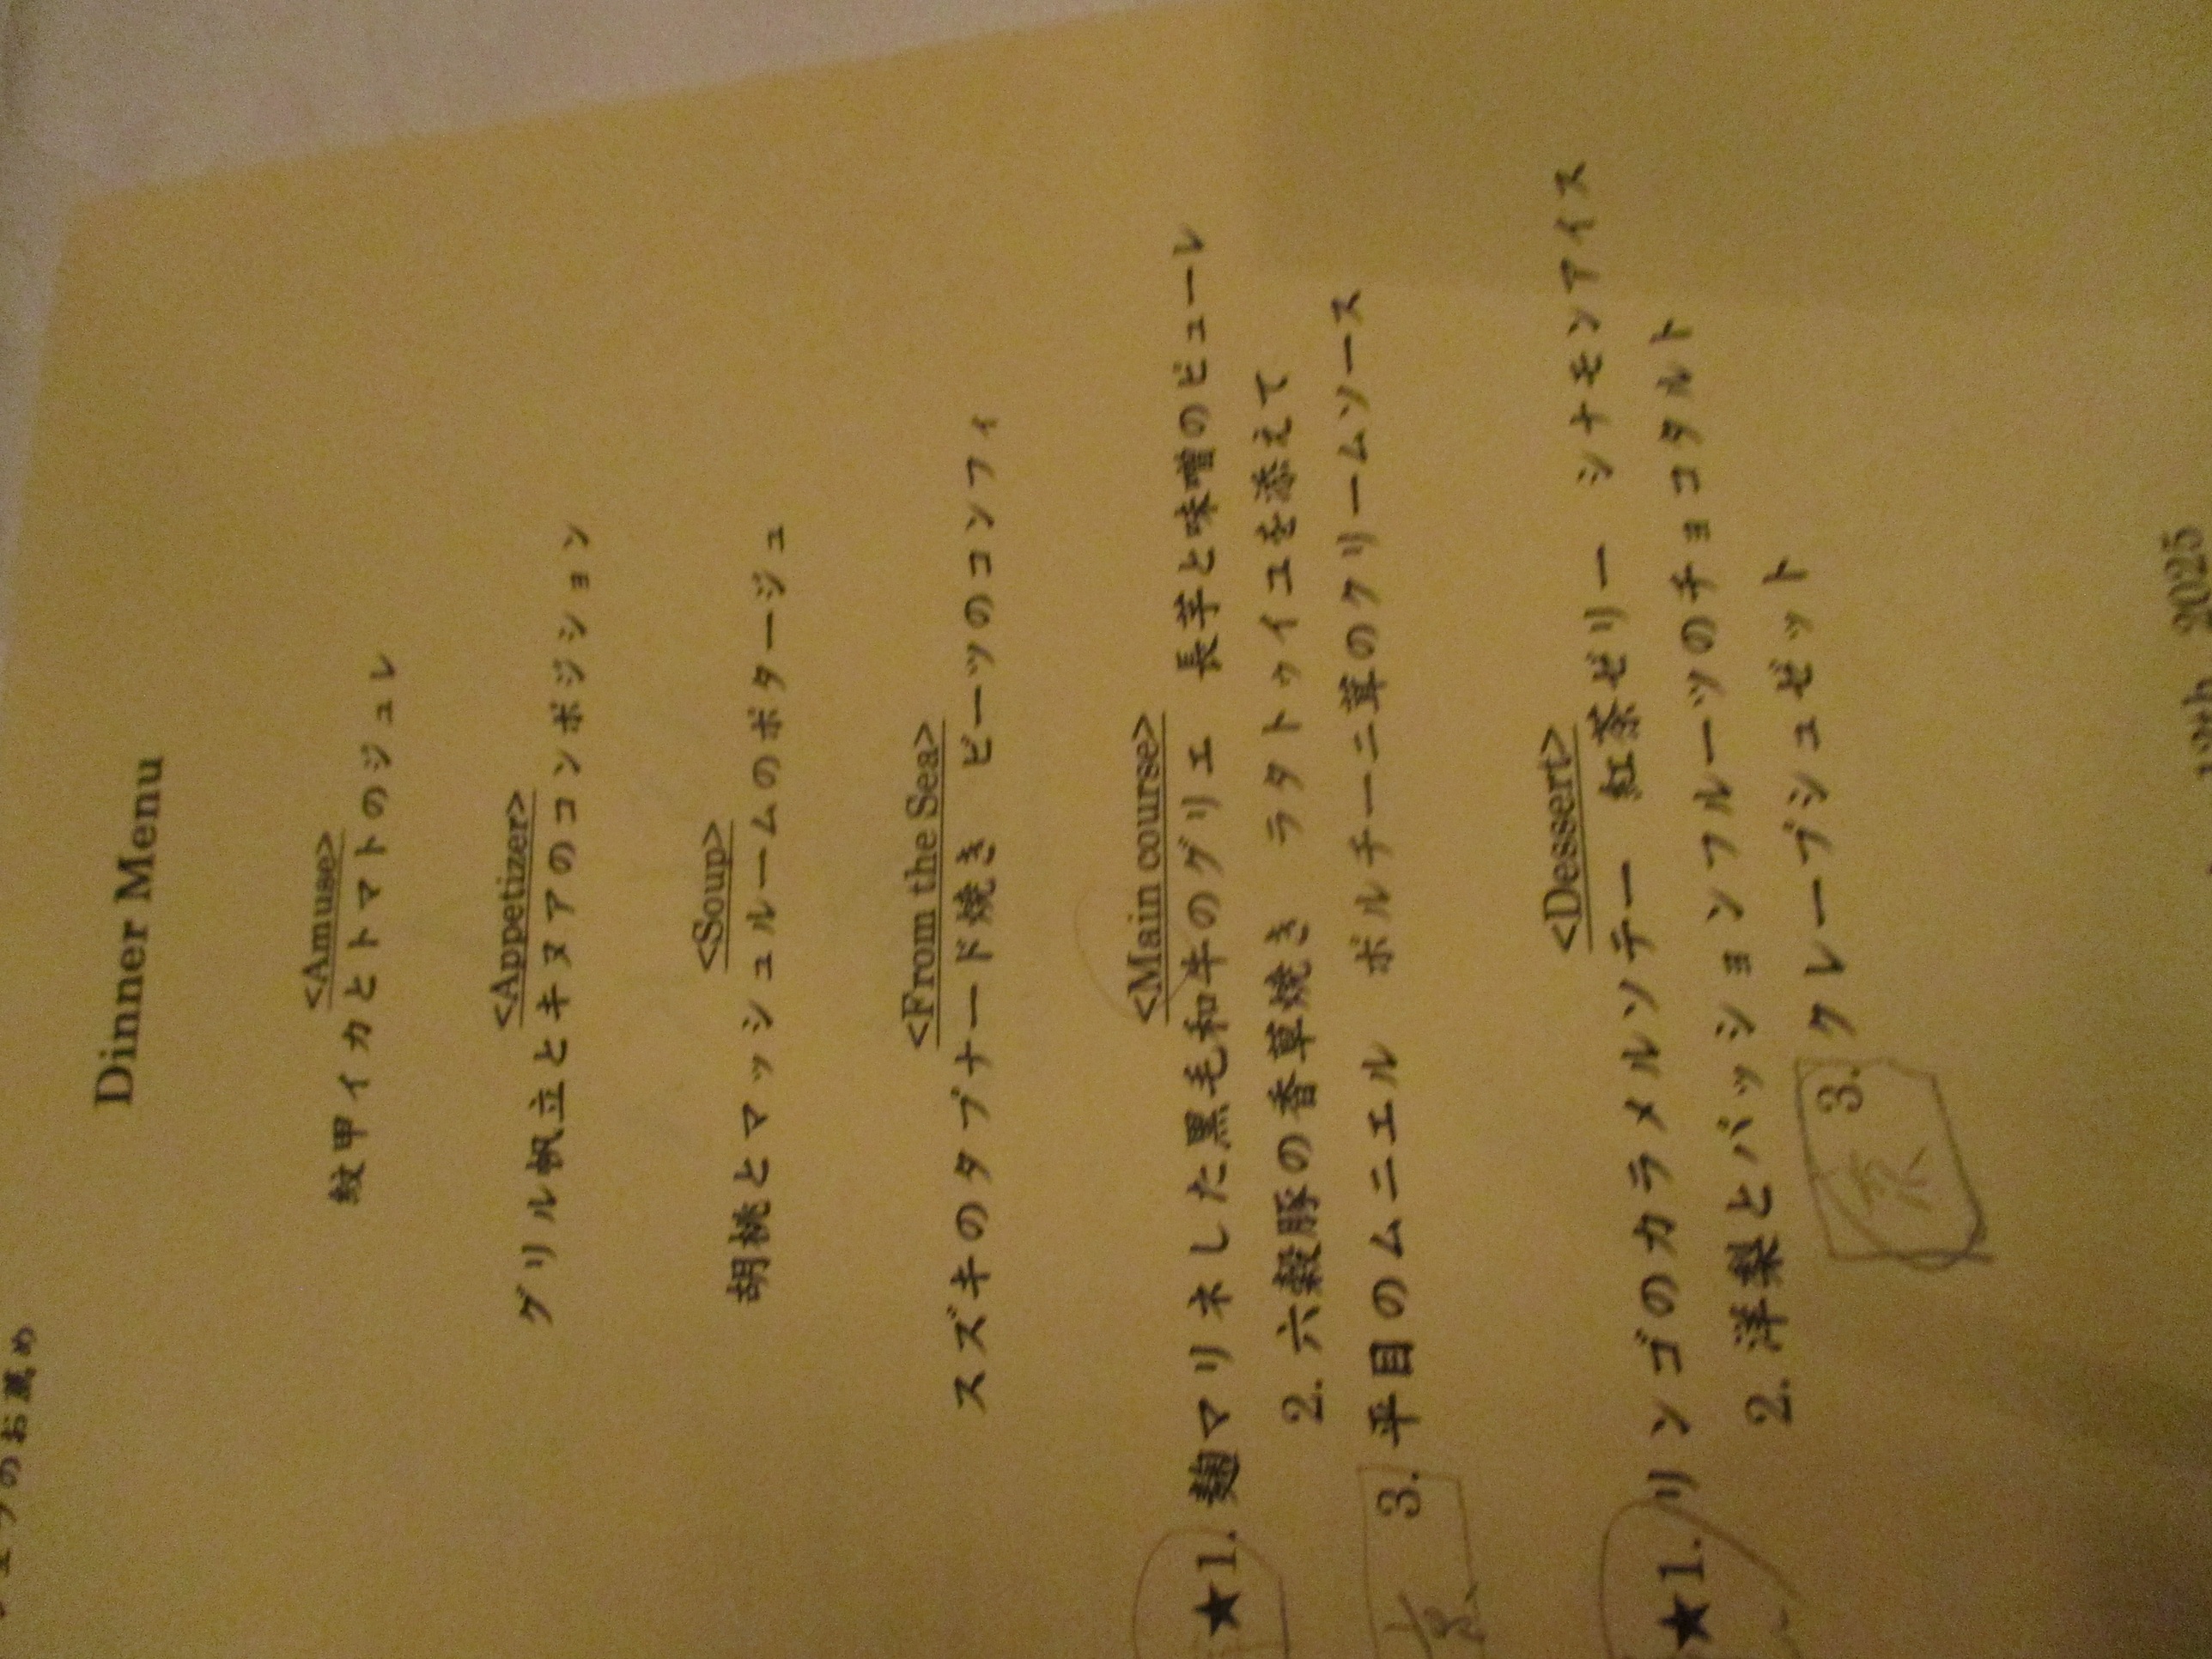 のお薦め
Dinner Menu
<Amuse>
紋甲イカとトマトのジュレ
<Appetizer>
グリル帆立とキヌアのコンポジション
<Soup>
胡桃とマッシュルームのポタージュ
<From the Sea>
スズキのタプナード焼き ビーツのコンフィ
<Main course>
★1. 麹マリネした黒毛和牛のグリエ 長芋と味噌のピューレ
2. 六穀豚の香草焼き ラタトゥイユを添えて
3. 平目のムニエル ポルチーニ茸のクリームソース
<Dessert>
★1. リンゴのカラメルソテー 紅茶ゼリー シナモンアイス
2. 洋梨とパッションフルーツのチョコタルト
3. クレープシュゼット
2025